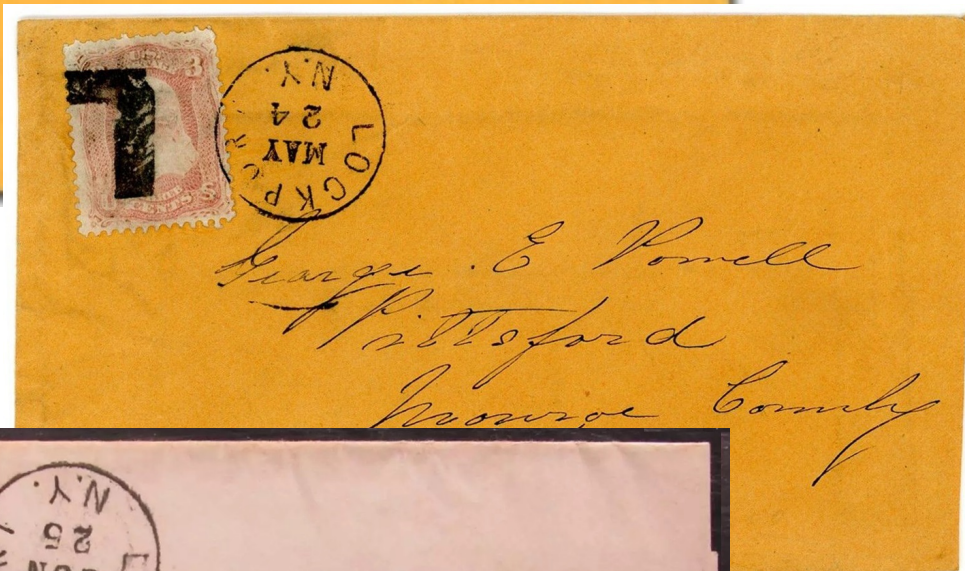 3
CENTS
LOCKPORT
MAY
24
N.Y.
George . E Powell
Pittsford
Monroe County
JUN
25
N.Y.